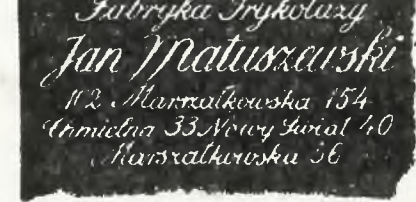 Fabryka Trykotaży
Jan Matuszewski
112 Marszałkowska 154
Chmielna 33 Nowy Świat 40
Marszałkowska 56